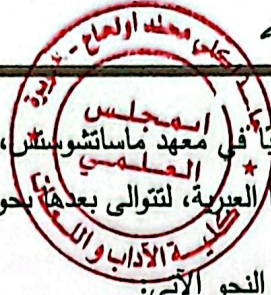 أكلي محند اولحاج - البويرة
المجلس
العلمي
كلية الآداب واللغات
في معهد ماساتشوستس،
العبرية، لتتوالى بعدها
النحو الآتي: